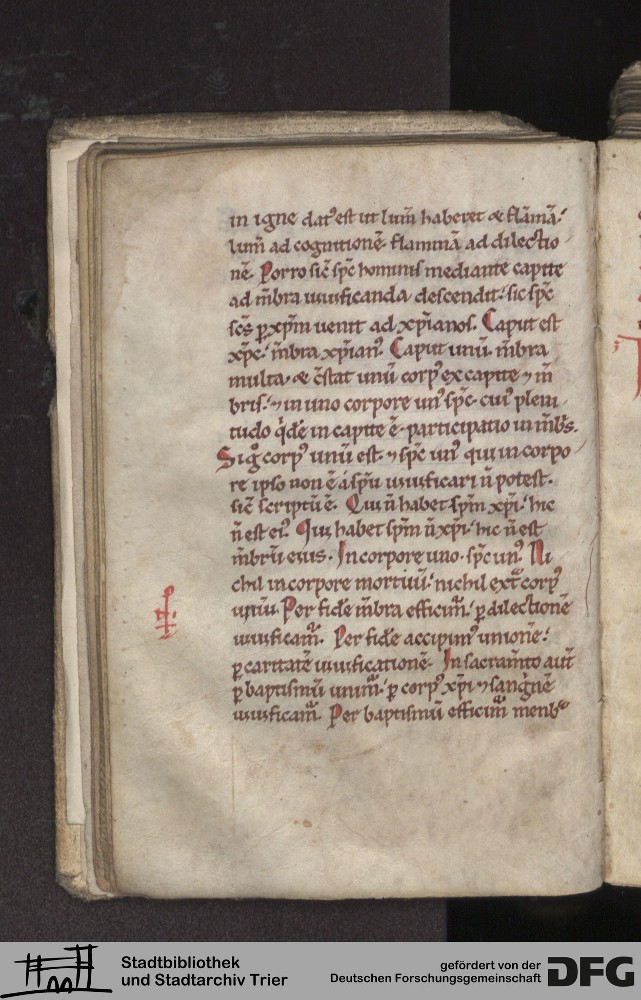 in igne dat᾽ est ut lum̄ haberet & flāmā.᾽
lum̄ ad cognitionē. flammā ad dilectio
nē. Porro sic̄ sp̄c hominis mediante capite
ad m̄bra uiuificanda descendit.᾽ sic sp̄c
sc̄s ꝑ xp̄m uenit ad xp̄ianos. Caput est
xp̄c.᾽ m̄bra xp̄ian᾽. Caput unū. m̄bra
multa. & c̄stat unū corp᾽ ex capite ⁊ m̄
bris.᾽ ⁊ in uno corpore un᾽ sp̄c. cui᾽ pleni
tudo q̇dē in capite ē. participatio in m̄bris.
Sigͦ corp᾽ unū est. ⁊ sp̄c un᾽ qui in corpo
re ipso non ē á sp̄u uiuificari n̄ potest.
sic̄ scriptū ē. Qui n̄ habet sp̄m xp̄i.᾽ hic
n̄ est ei᾽. Qui habet sp̄m n̄ xp̄i.᾽ hic n̄ est
m̄brū eius. In corpore uno. sp̄c un᾽. Ni
chil in corpore mortuū.᾽ nichil ext̾ corp᾽
uiuū. Per fidē m̄bra efficim̾.᾽ ꝑ dilectionē
uiuificam̾. Per fidē accipim᾽ unionē.᾽
ꝑ caritatē uiuificationē. In sacram̄to aut̄
ꝑ baptismū unim̾.᾽ ꝑ corp᾽ xp̄i ⁊ sangnē
uiuificam̾. Per baptismū efficim̾ menbᵃ
Stadtbibliothek
und Stadtarchiv Trier
gefördert von der
Deutschen Forschungsgemeinschaft
DFG